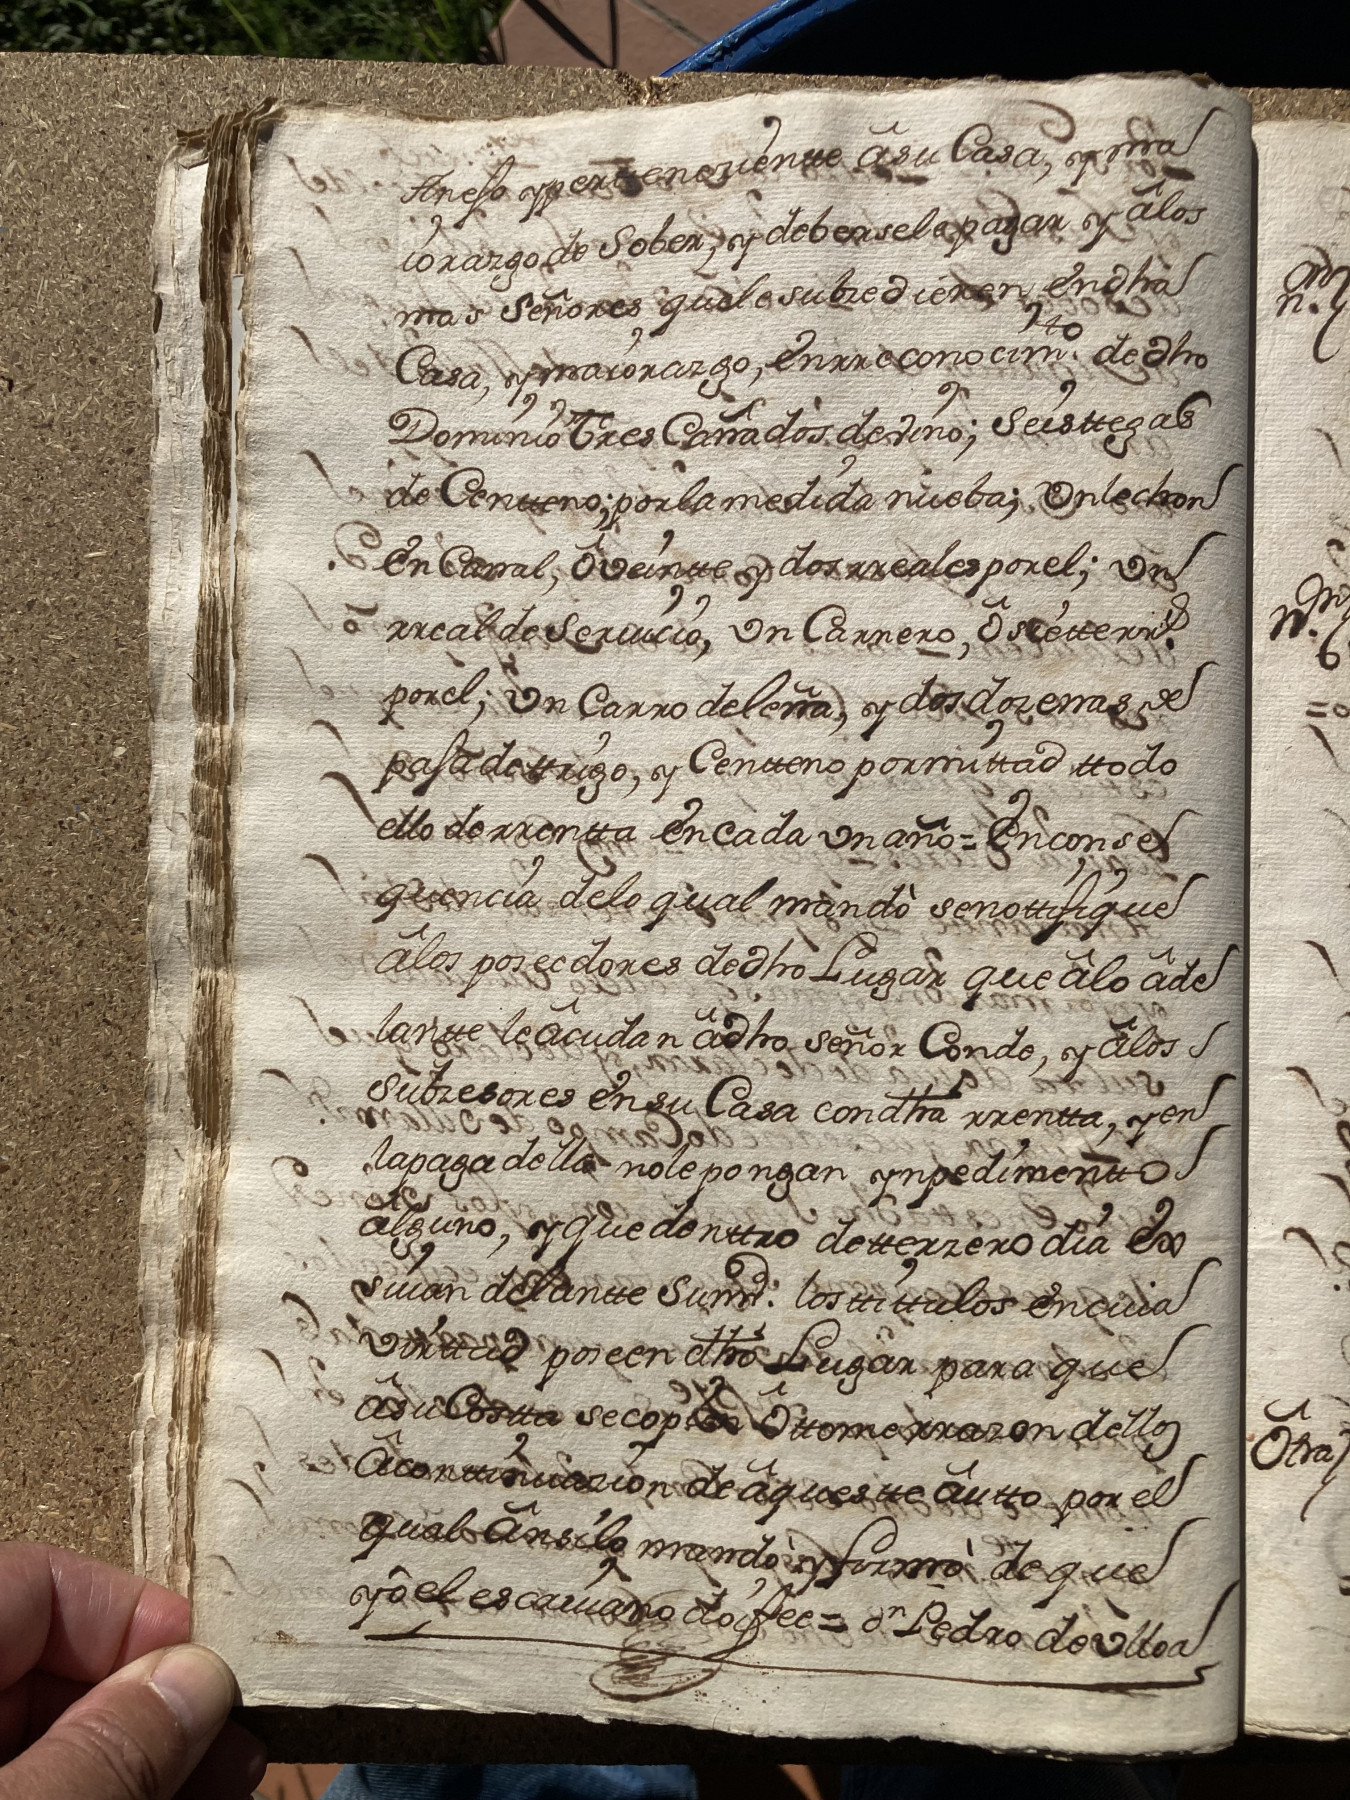 Anejo y perteneziente â su Casa, y ma
iorazgo de Sober, y debersele pagar y â los
mas Señores que le subzedieren en dha
Casa, y maiorazgo, en rreconocim.to de dho
Dominio Tres Cañados de vino; Seis ttegas
de Centteno; por la medida nueba; Un lechon
en Carral, ô veintte y dos rreales por el; Un
rreal de Seruicio, Un Carnero, ô siette rr.s
por el; Un Carro de leña, y dos dozenas de
paja de ttrigo, y Centteno por mittad ttodo
ello de rrentta en cada un año = En conse
quencia de lo qual mandò se nottifique
â los poseedores de dho Lugar que â lo âde
lantte le âcudan â dho señor Conde, y â los
subzesores en su Casa con dha rrentta, y en
la paga della no le pongan ynpedimentto
alguno, y que denttro de tterzero dia ex
siuan delantte Su mrd: los ttittulos en cuia
virttud poseen dho Lugar para que
â su Costta se copien ô ttome rrazon dellos
â conttinuazion de âquestte âutto por el
qual ânsi lo mandò y firmò de que
yô el escriuano doi fee = Dn Pedro de Ulloa
Otra